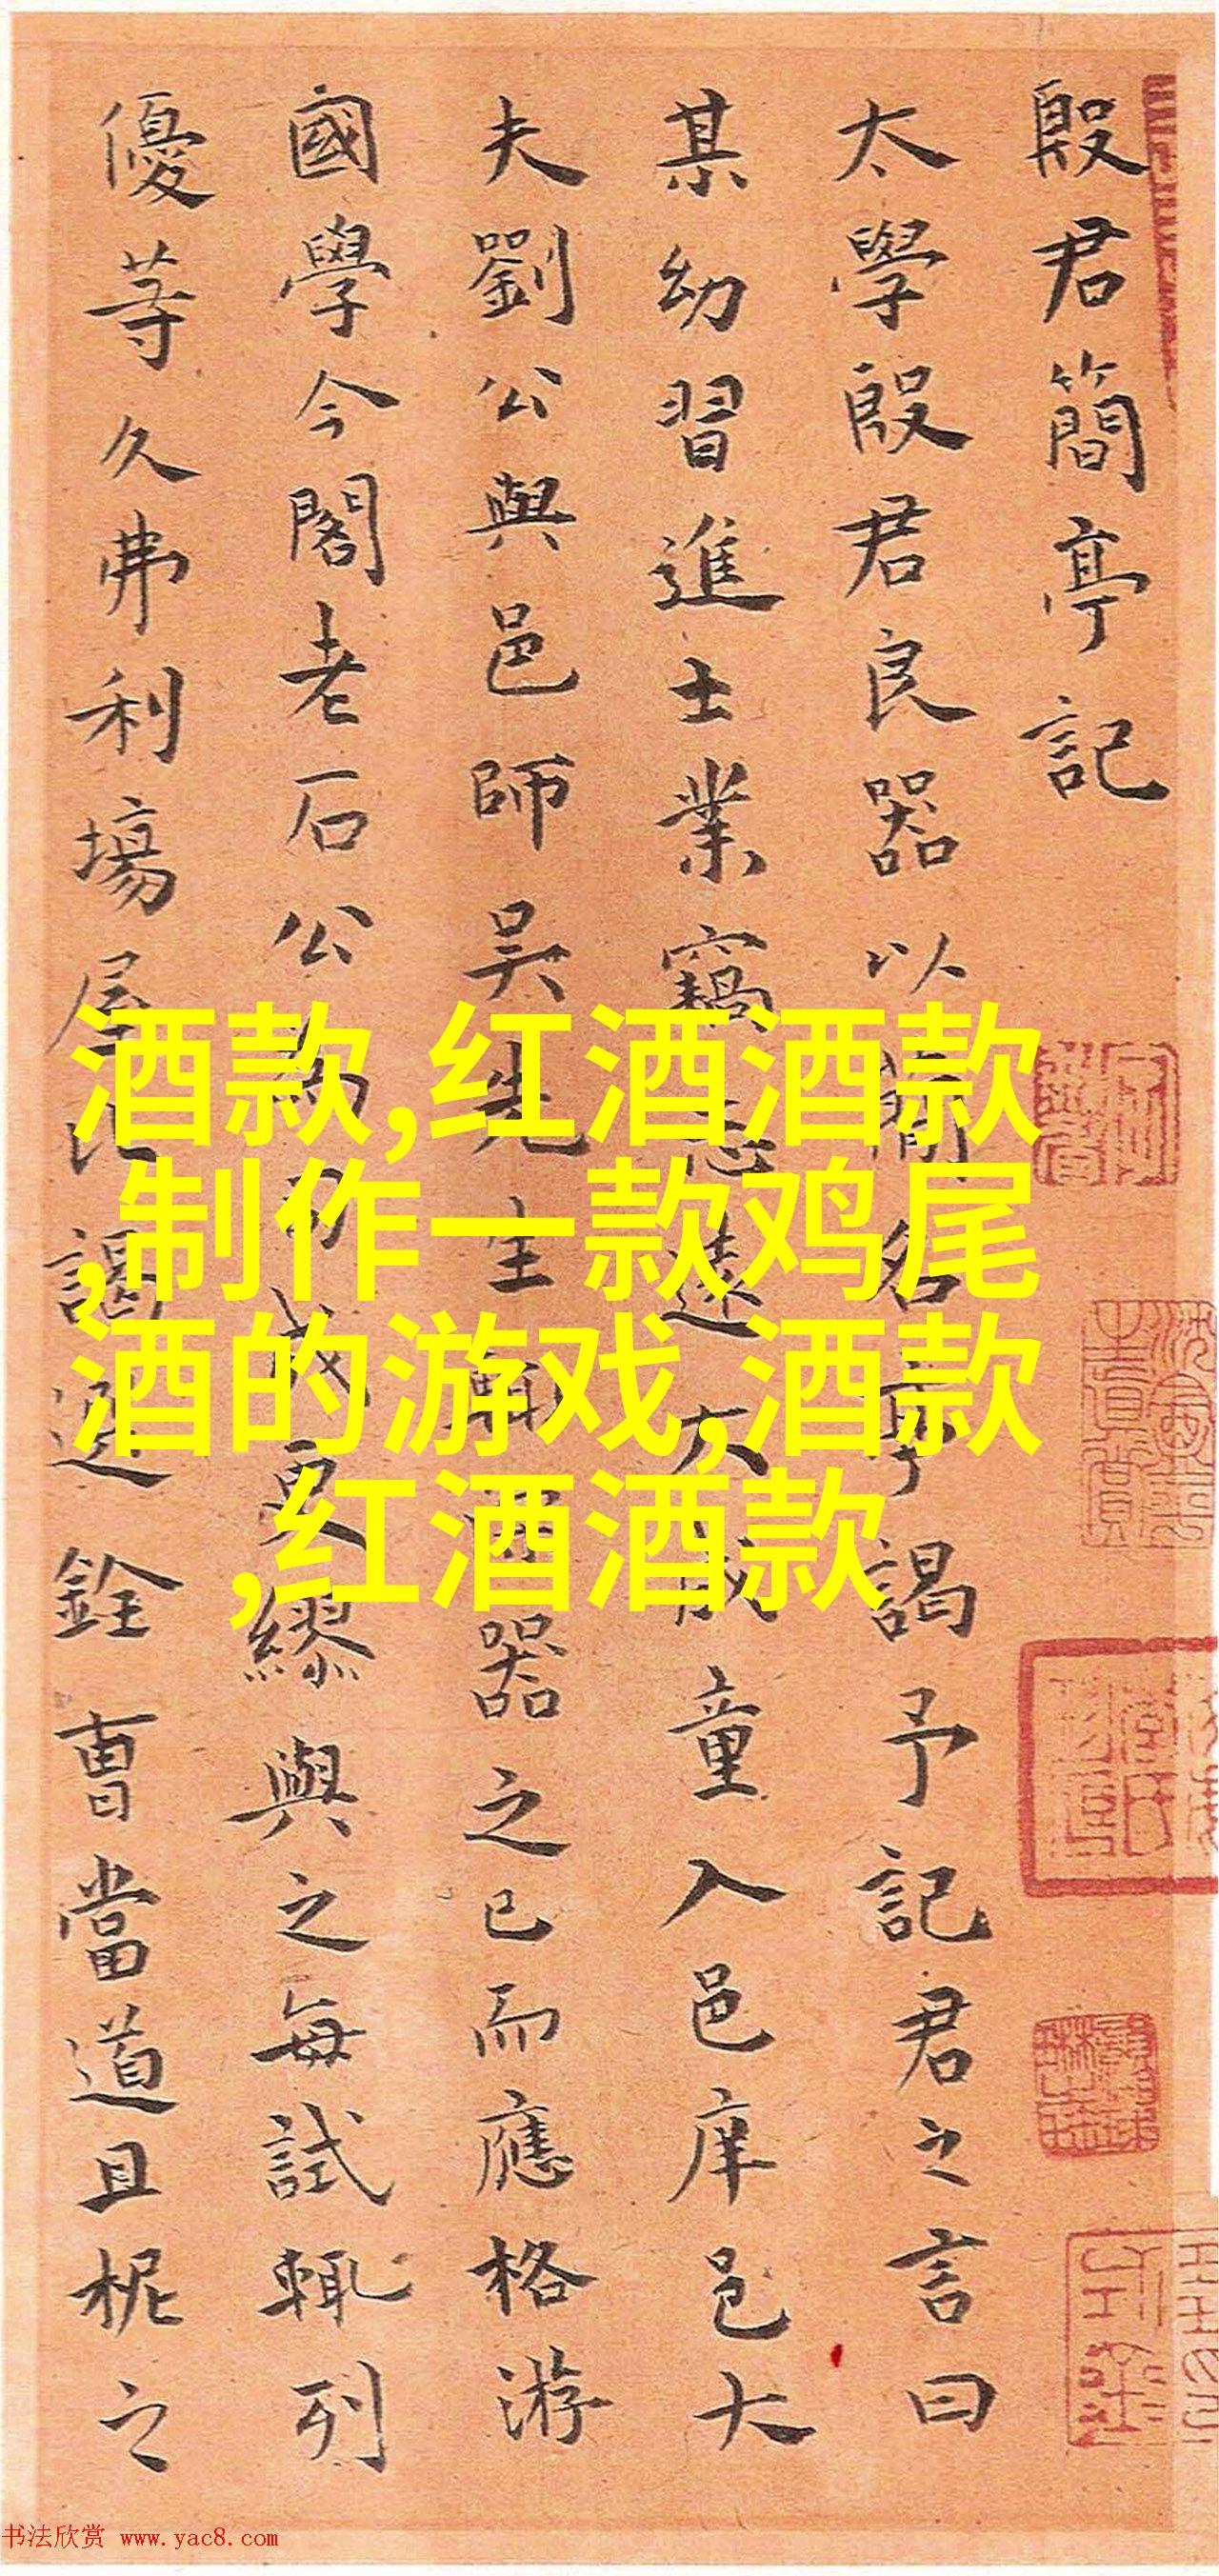 殷君簡亭記
太學殷君良器以簡名亭謁予記君之言曰
某幼習進士業竊志遠大成童入邑庠邑大
夫劉公與邑師吳先生輒器之已而應格游
國學今閣老石公為司成更繆與之每試輒列
優等久弗利場屋比謁選銓曹當道且柅之
酒款,红酒酒款
,制作一款鸡尾
酒的游戏,酒款
,红酒酒款
书法欣赏 www.yac8.com